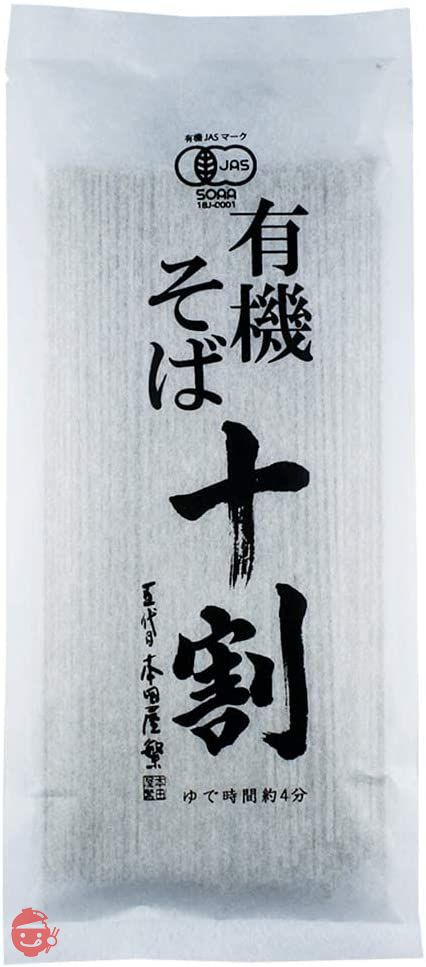 有機JASマーク
JAS
SOAA
18J-0001
有機
そば
十割
五代目 本田屋繁
ゆで時間約4分